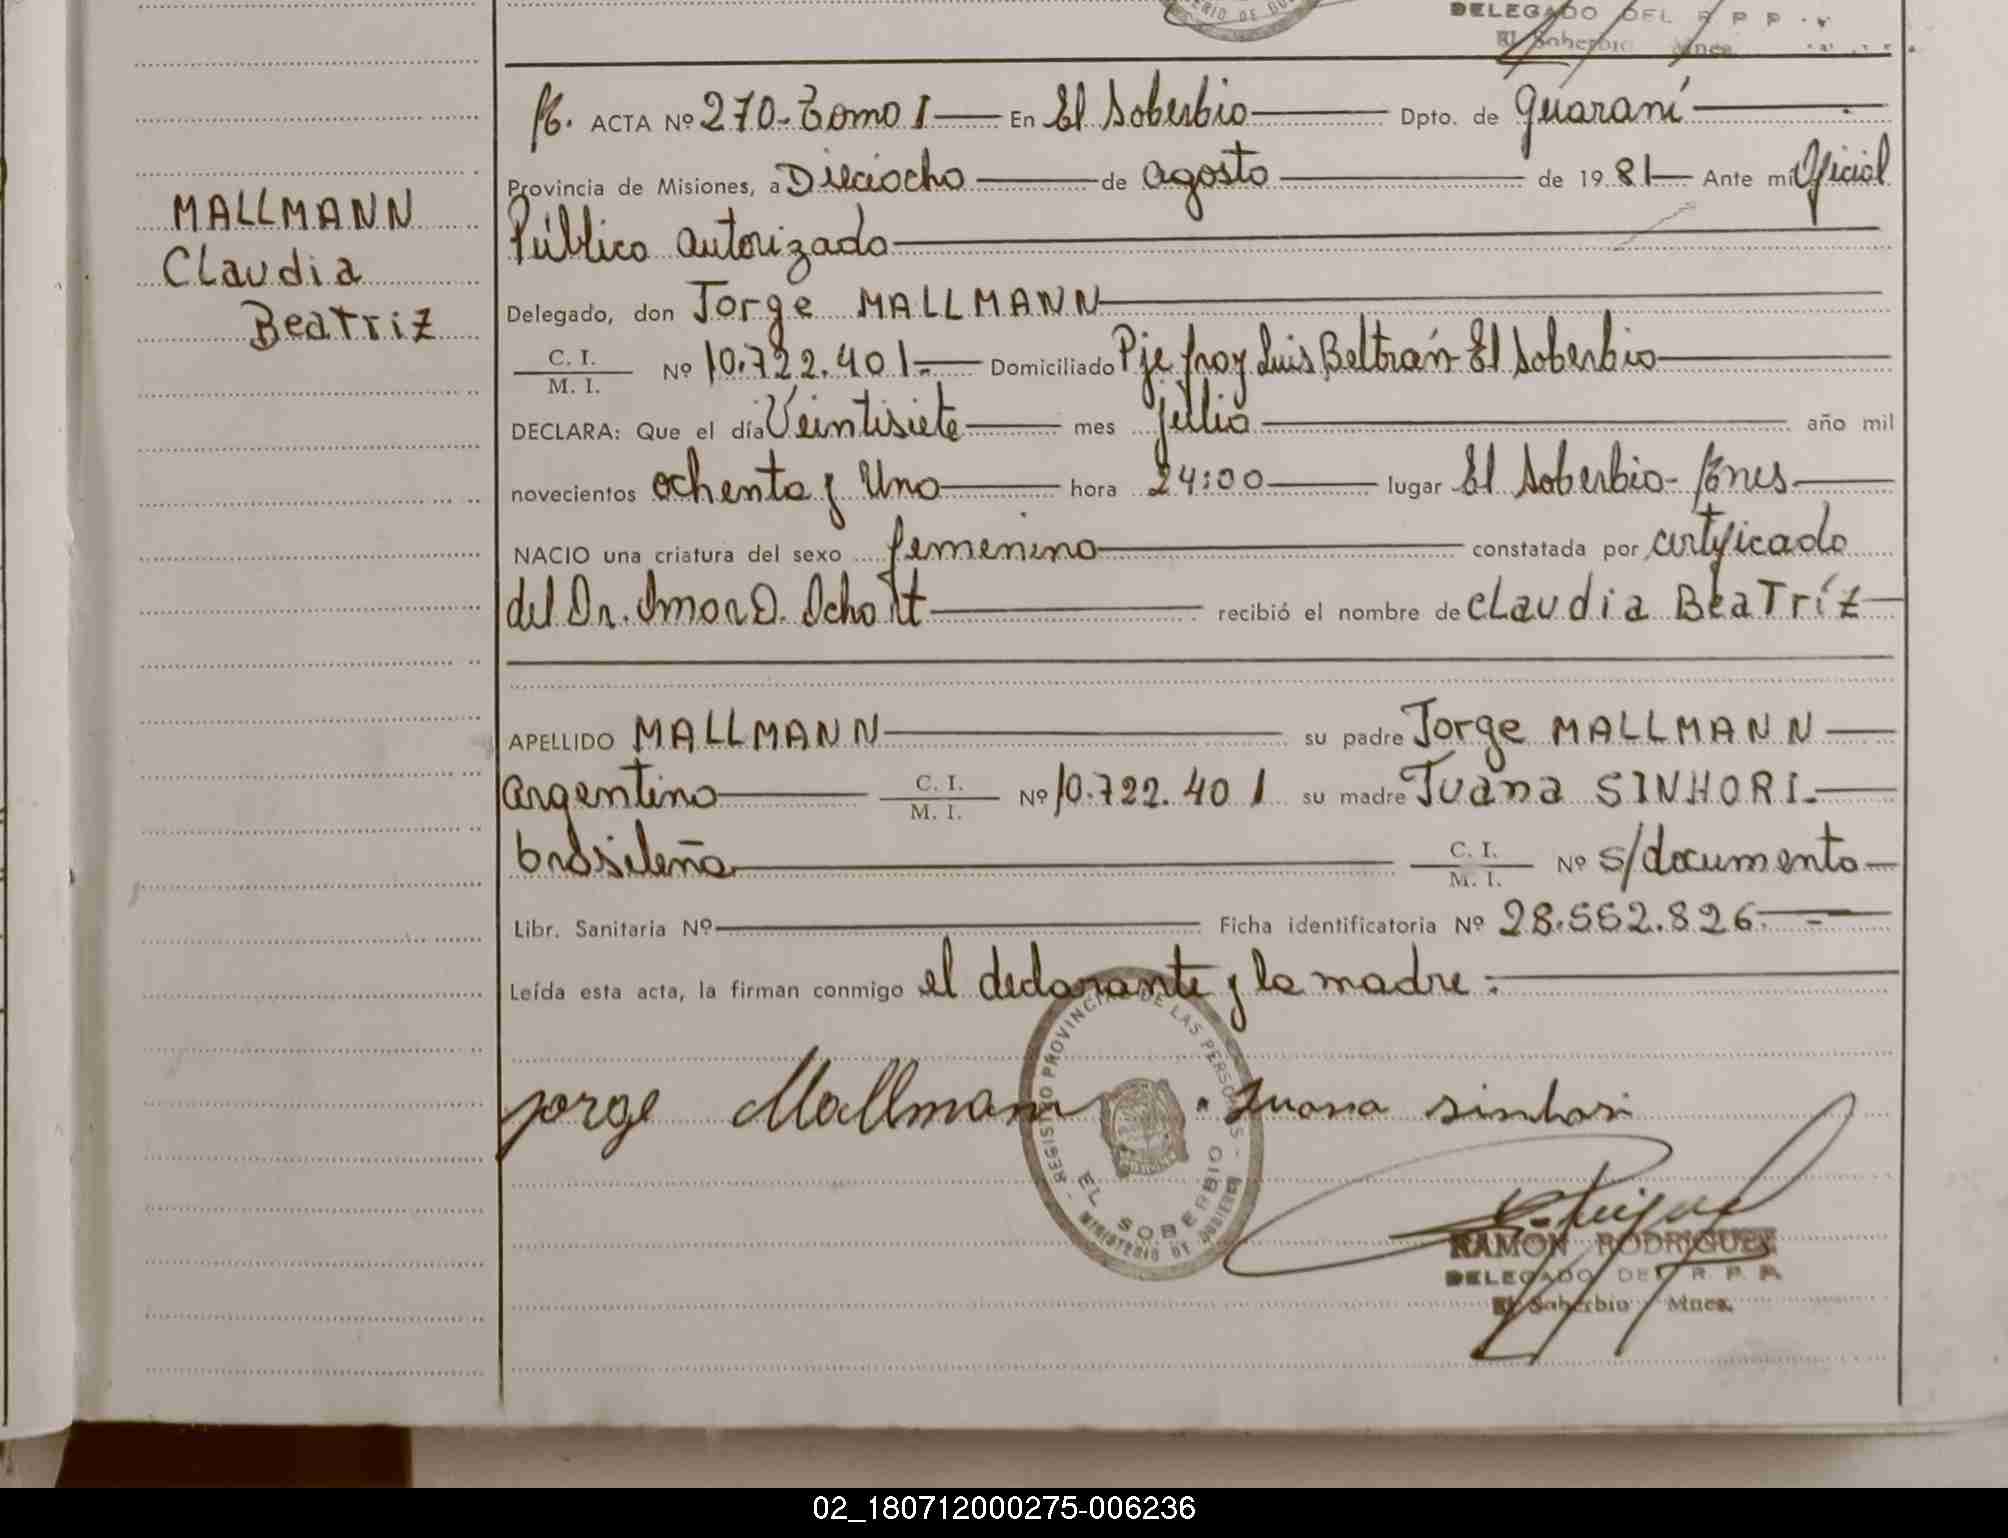 DELEGADO DEL R. P. P.
El Soberbio Mnes.
MALLMANN
Claudia
Beatriz
ACTA Nº 270-Tomo I En El Soberbio Dpto. de Guaraní
Provincia de Misiones, a Dieciocho de agosto de 1981 Ante mi Oficial
Público autorizado
Delegado, don Jorge MALLMANN
C. I.
M. I. Nº 10.722.401.- Domiciliado Pje fray Luis Beltrán-El Soberbio
DECLARA: Que el día Veintisiete mes julio año mil
novecientos ochenta y Uno hora 24:00 lugar El Soberbio-Mnes
NACIO una criatura del sexo femenino constatada por certificado
del Dr. Omar D. recibió el nombre de Claudia Beatríz
APELLIDO MALLMANN su padre Jorge MALLMANN
argentino C. I.
M. I. Nº 10.722.401 su madre Juana SINHORI.
brasileña C. I.
M. I. Nº s/documento
Libr. Sanitaria Nº Ficha identificatoria Nº 28.552.826.-
Leída esta acta, la firman conmigo el declarante y la madre.-
Jorge Mallmann Juana sinhori
REGISTRO PROVINCIAL DE LAS PERSONAS
EL SOBERBIO
MINISTERIO DE GOBIERNO
RAMON RODRIGUEZ
DELEGADO DEL R. P. P.
El Soberbio Mnes.
02_180712000275-006236